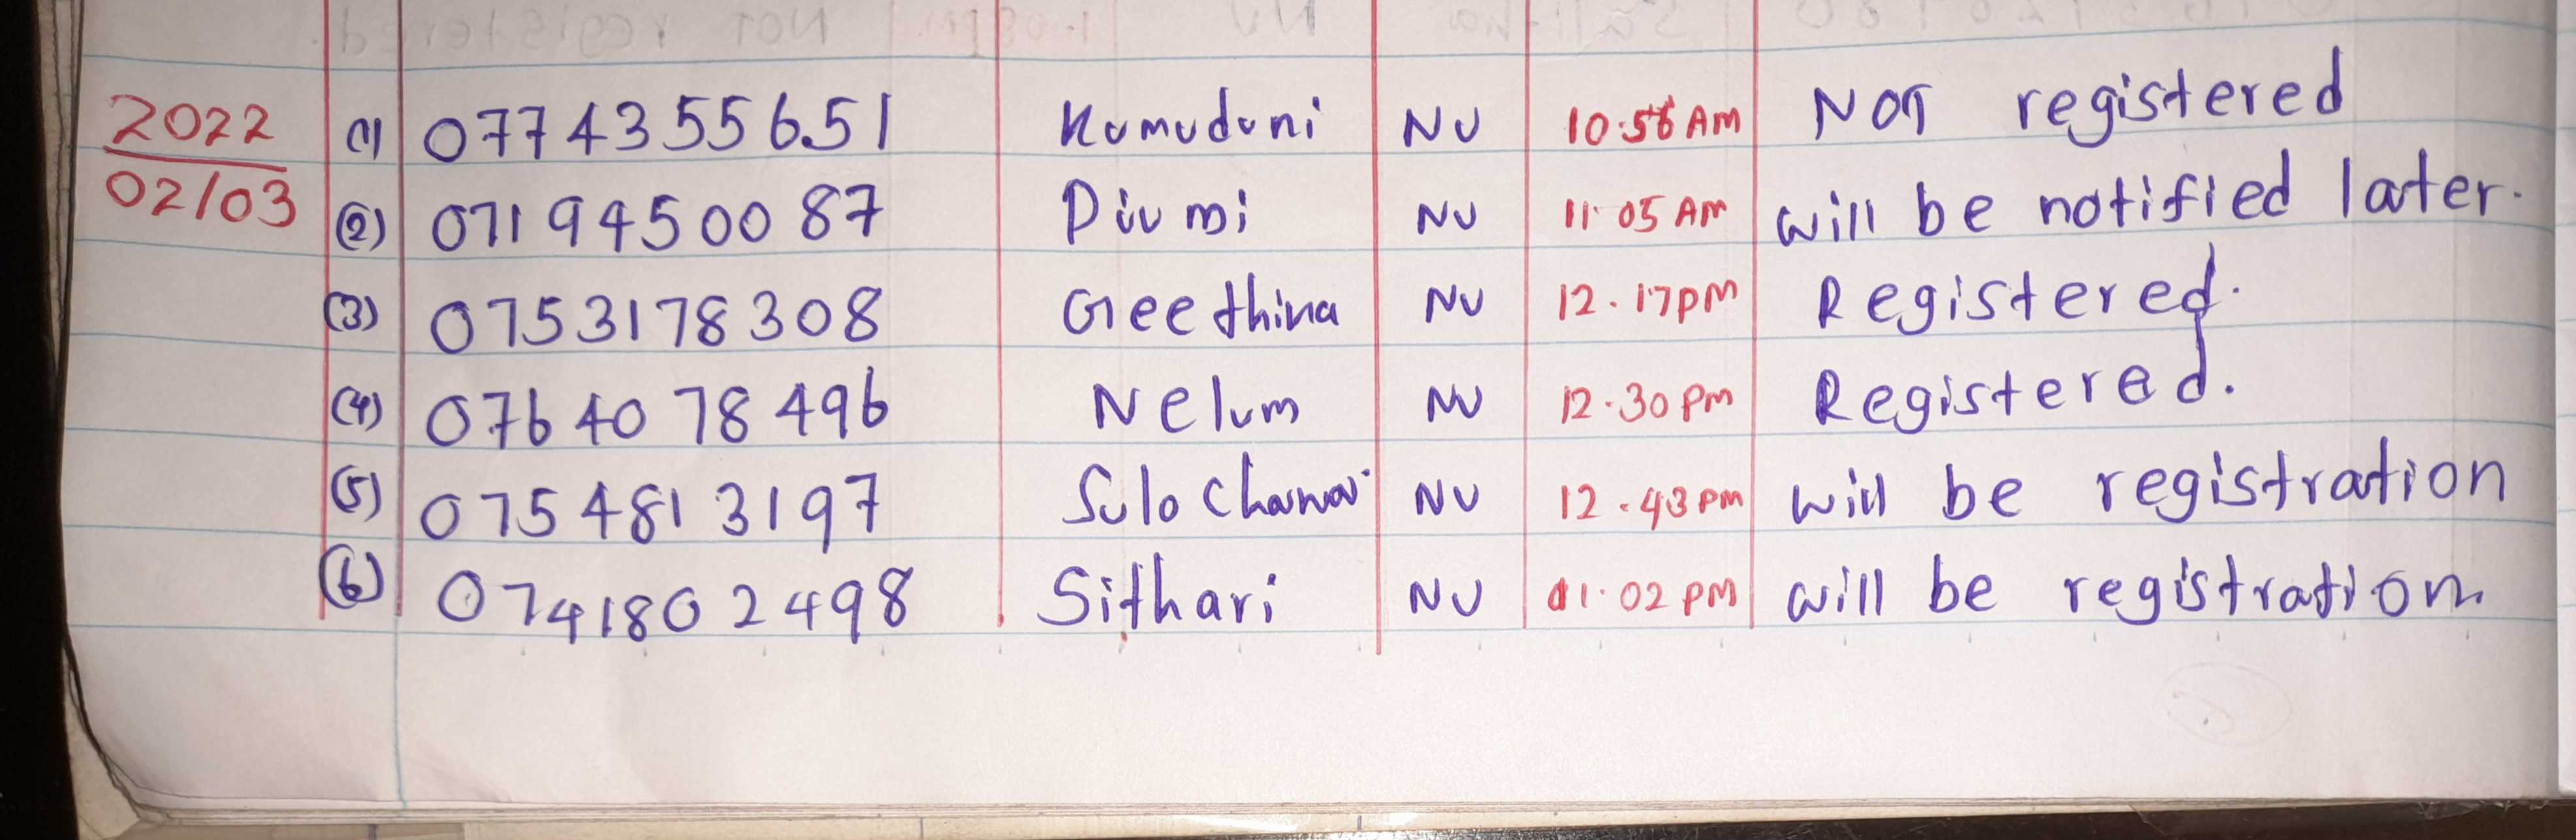 2022 (1) 0774355651 Kumuduni NU 10.56 AM NOT registered
02/03 (2) 0719450087 Piumi NU 11.05 AM will be notified later.
(3) 0753178308 Geethina NU 12.17pm Registered.
(4) 0764078496 Nelum NU 12.30 pm Registered.
(5) 0754813197 Sulochana NU 12.43 pm will be registration
(6) 0741802498 Sithari NU 01.02 PM will be registration.